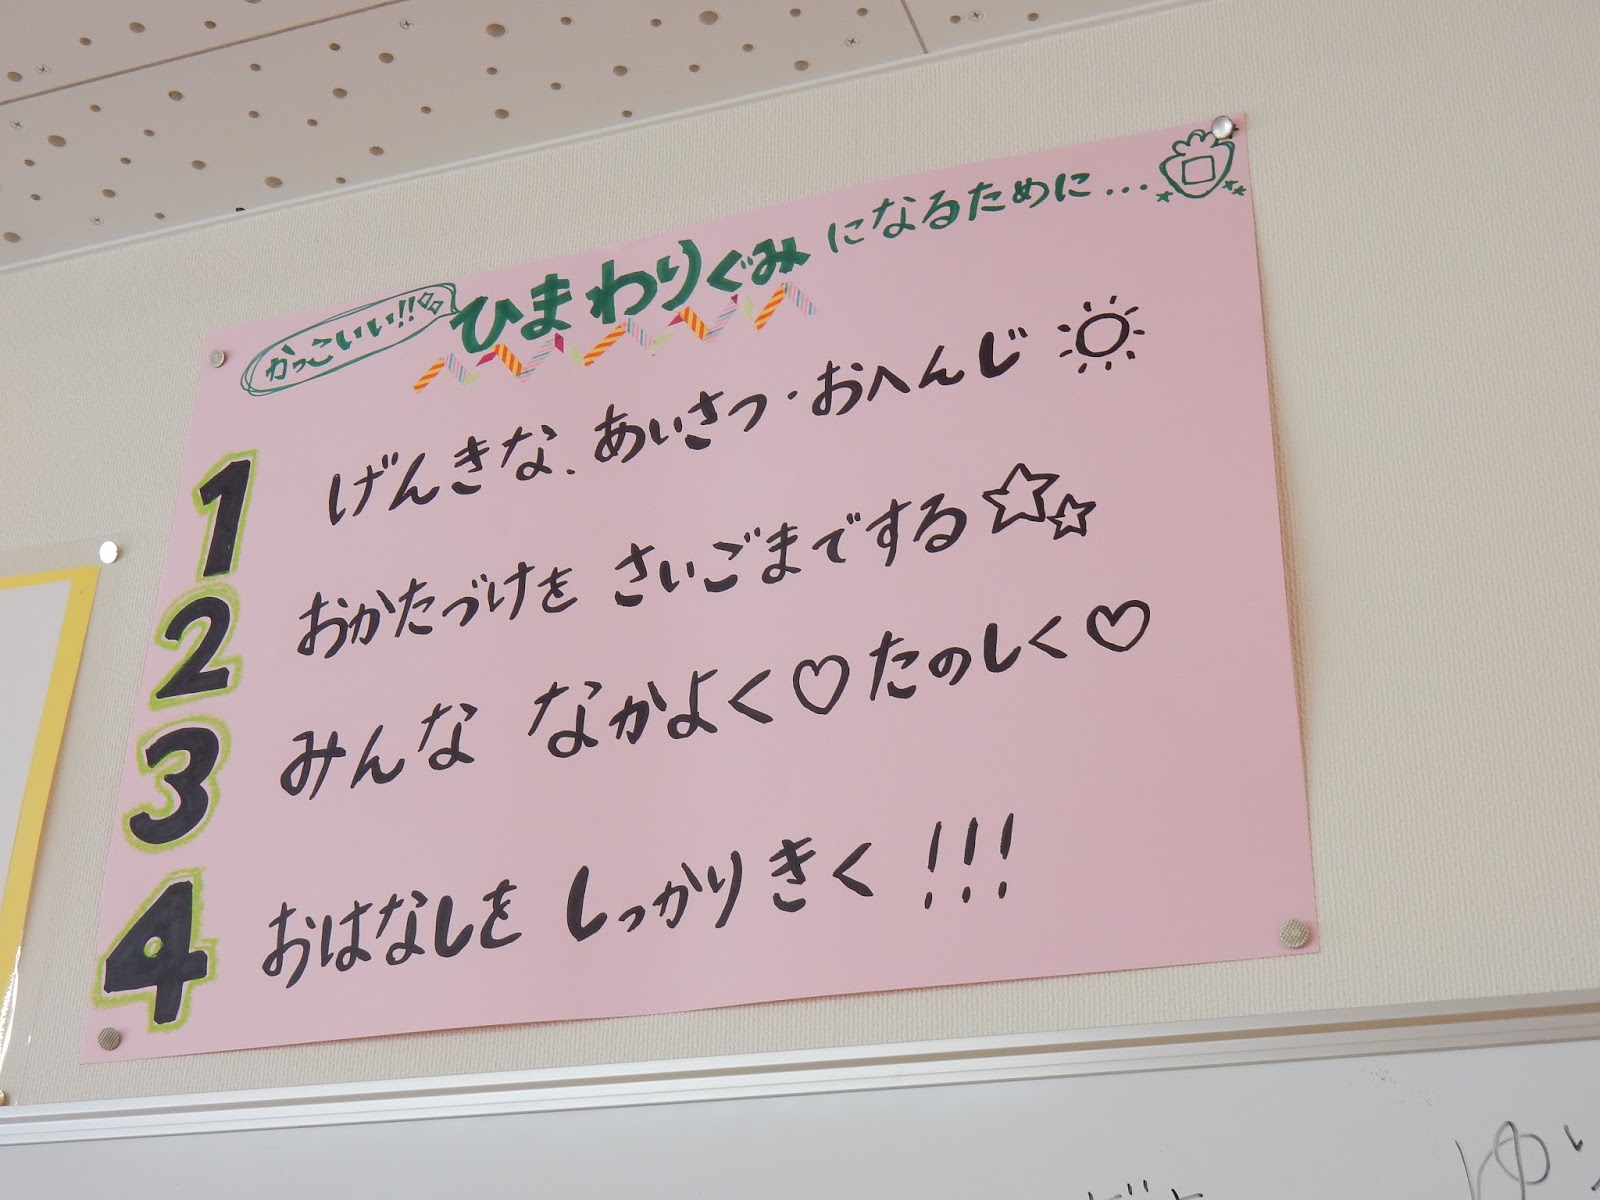 かっこいい!! ひまわりぐみになるために...
1 げんきな、あいさつ・おへんじ
2 おかたづけを さいごまでする
3 みんな なかよく♡たのしく♡
4 おはなしを しっかりきく!!!